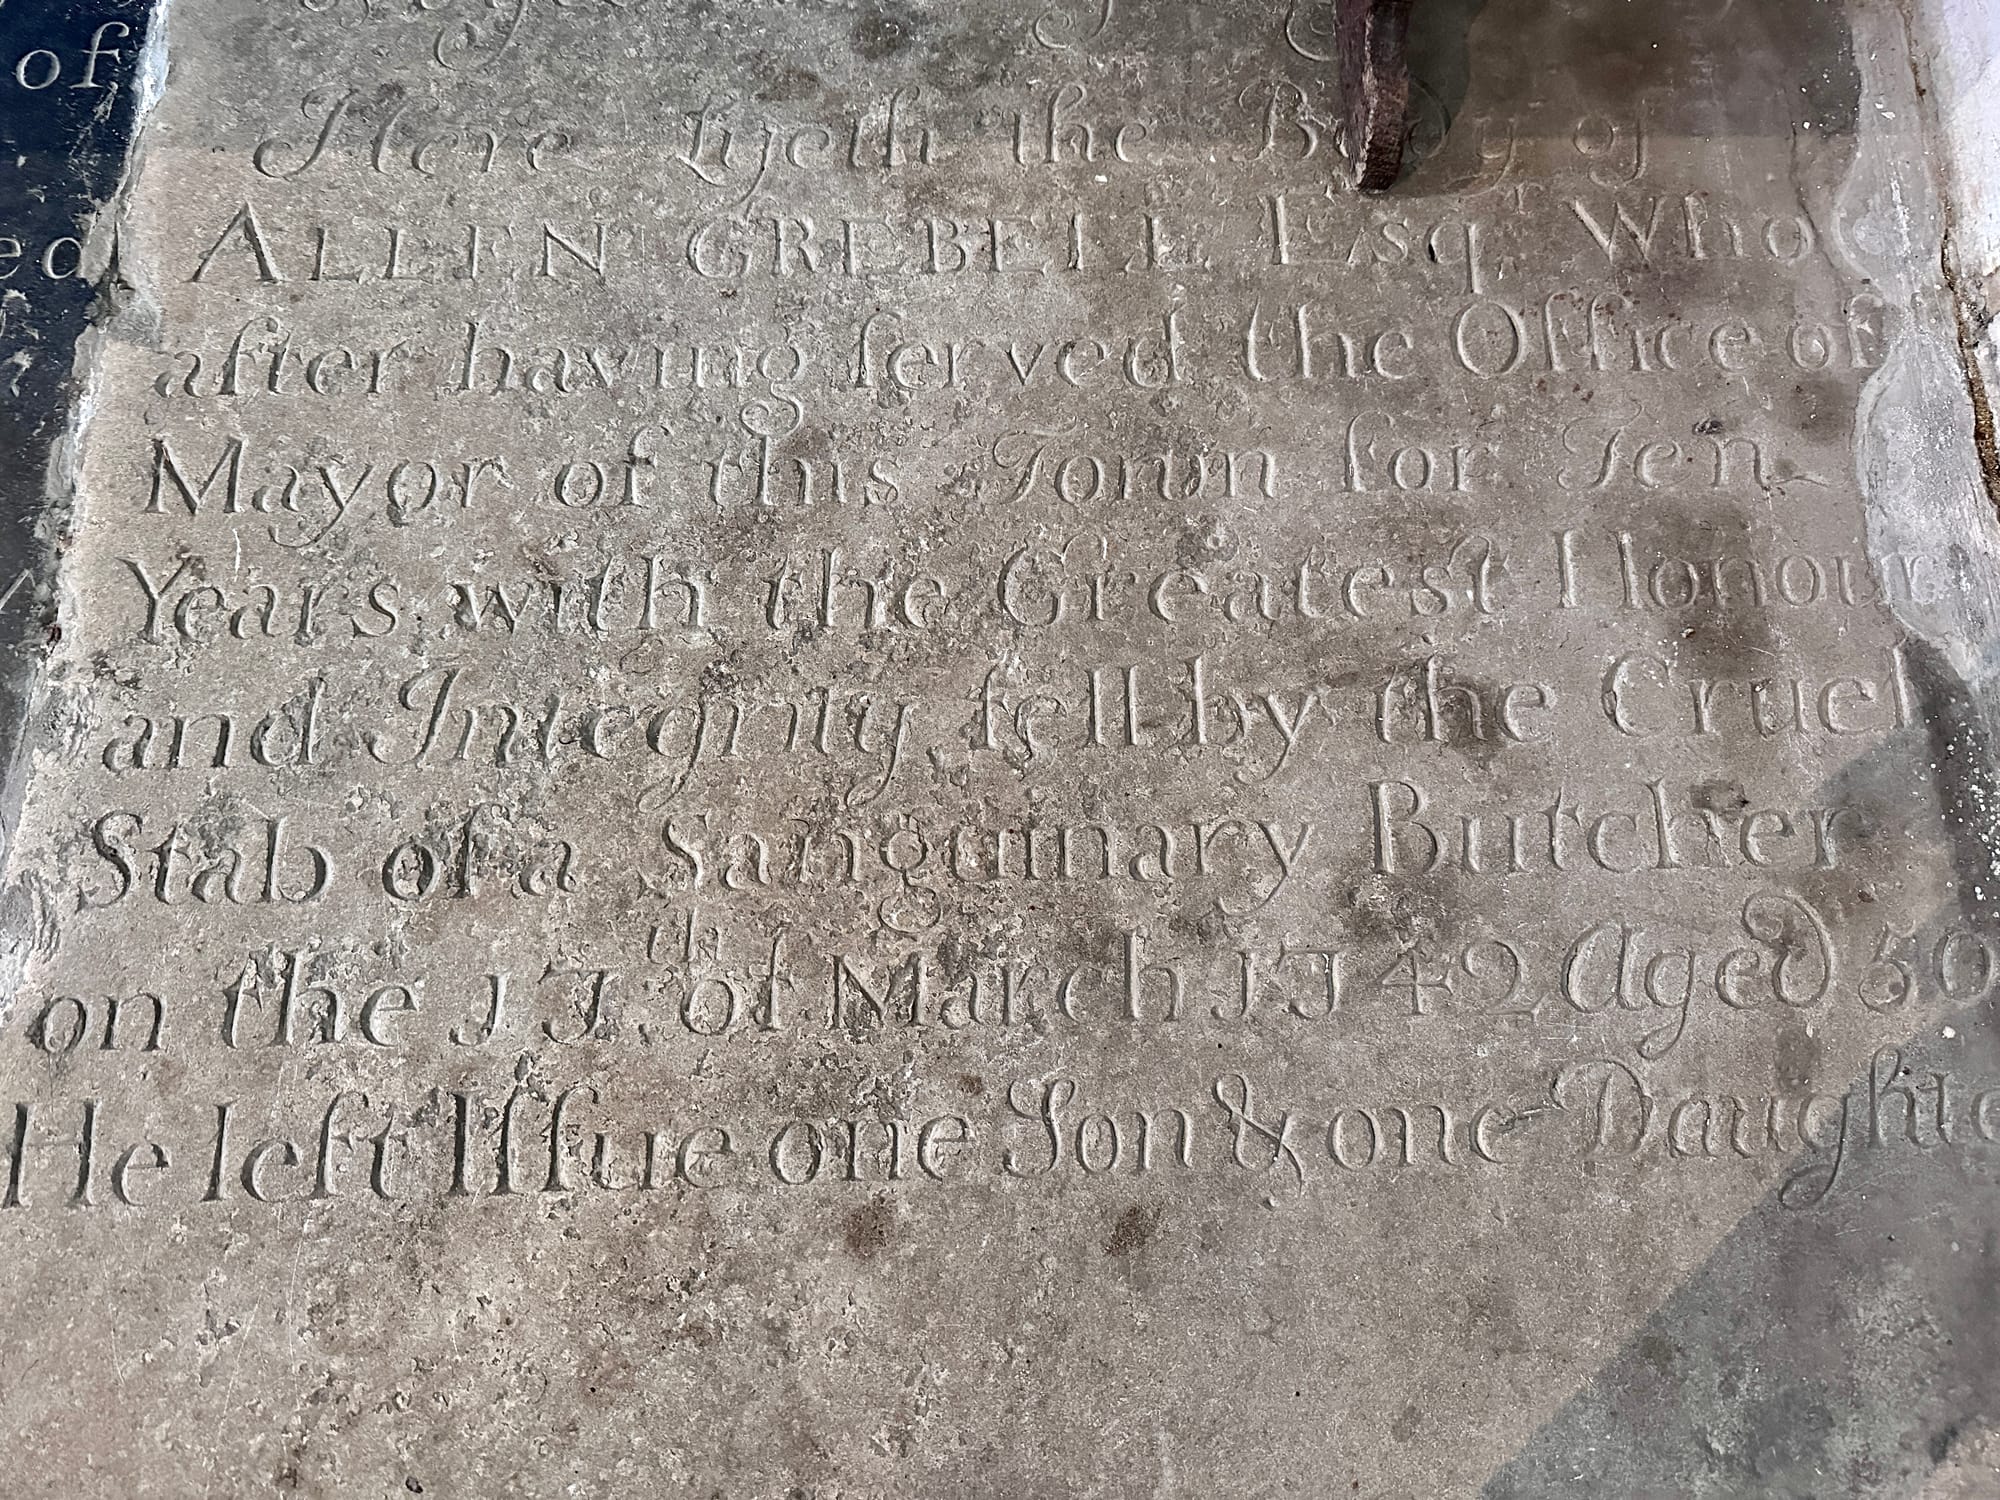 Here lyeth the Body of
ALLEN GREBELL Esqr. Who
after having ſerved the Office of
Mayor of this Town for Ten
Years with the Greatest Honour
and Integrity fell by the Cruel
Stab of a Sanguinary Butcher
on the 17th. of March 1742 Aged 50
He left Iſſue one Son & one Daughte
of